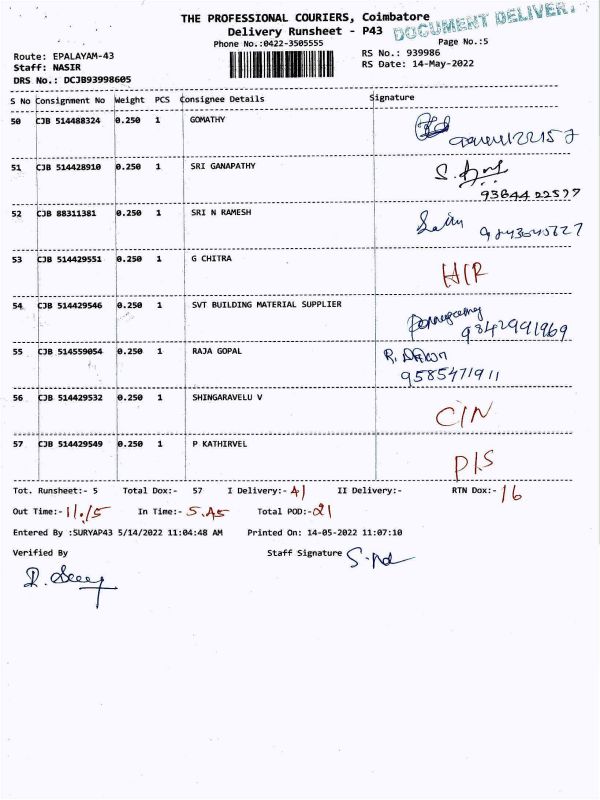 THE PROFESSIONAL COURIERS, Coimbatore
DOCUMENT DELIVER
Delivery Runsheet - P43
Phone No.:0422-3505555
Page No.:5
Route: EPALAYAM-43
RS No.: 939986
Staff: NASIR
RS Date: 14-May-2022
DRS No.: DCJB93998605
S No Consignment No Weight PCS Consignee Details Signature
50 CJB 514488324 0.250 1 GOMATHY
51 CJB 514428910 0.250 1 SRI GANAPATHY
9384422577
52 CJB 88311381 0.250 1 SRI N RAMESH
53 CJB 514429551 0.250 1 G CHITRA
H/R
54 CJB 514429546 0.250 1 SVT BUILDING MATERIAL SUPPLIER
9842991969
55 CJB 514559054 0.250 1 RAJA GOPAL
9585471911
56 CJB 514429532 0.250 1 SHINGARAVELU V
C/N
57 CJB 514429549 0.250 1 P KATHIRVEL
P/S
Tot. Runsheet:- 5 Total Dox:- 57 I Delivery:- 41 II Delivery:- RTN Dox:- 16
Out Time:- 11.15 In Time:- 5.45 Total POD:- 21
Entered By :SURYAP43 5/14/2022 11:04:48 AM Printed On: 14-05-2022 11:07:10
Verified By Staff Signature